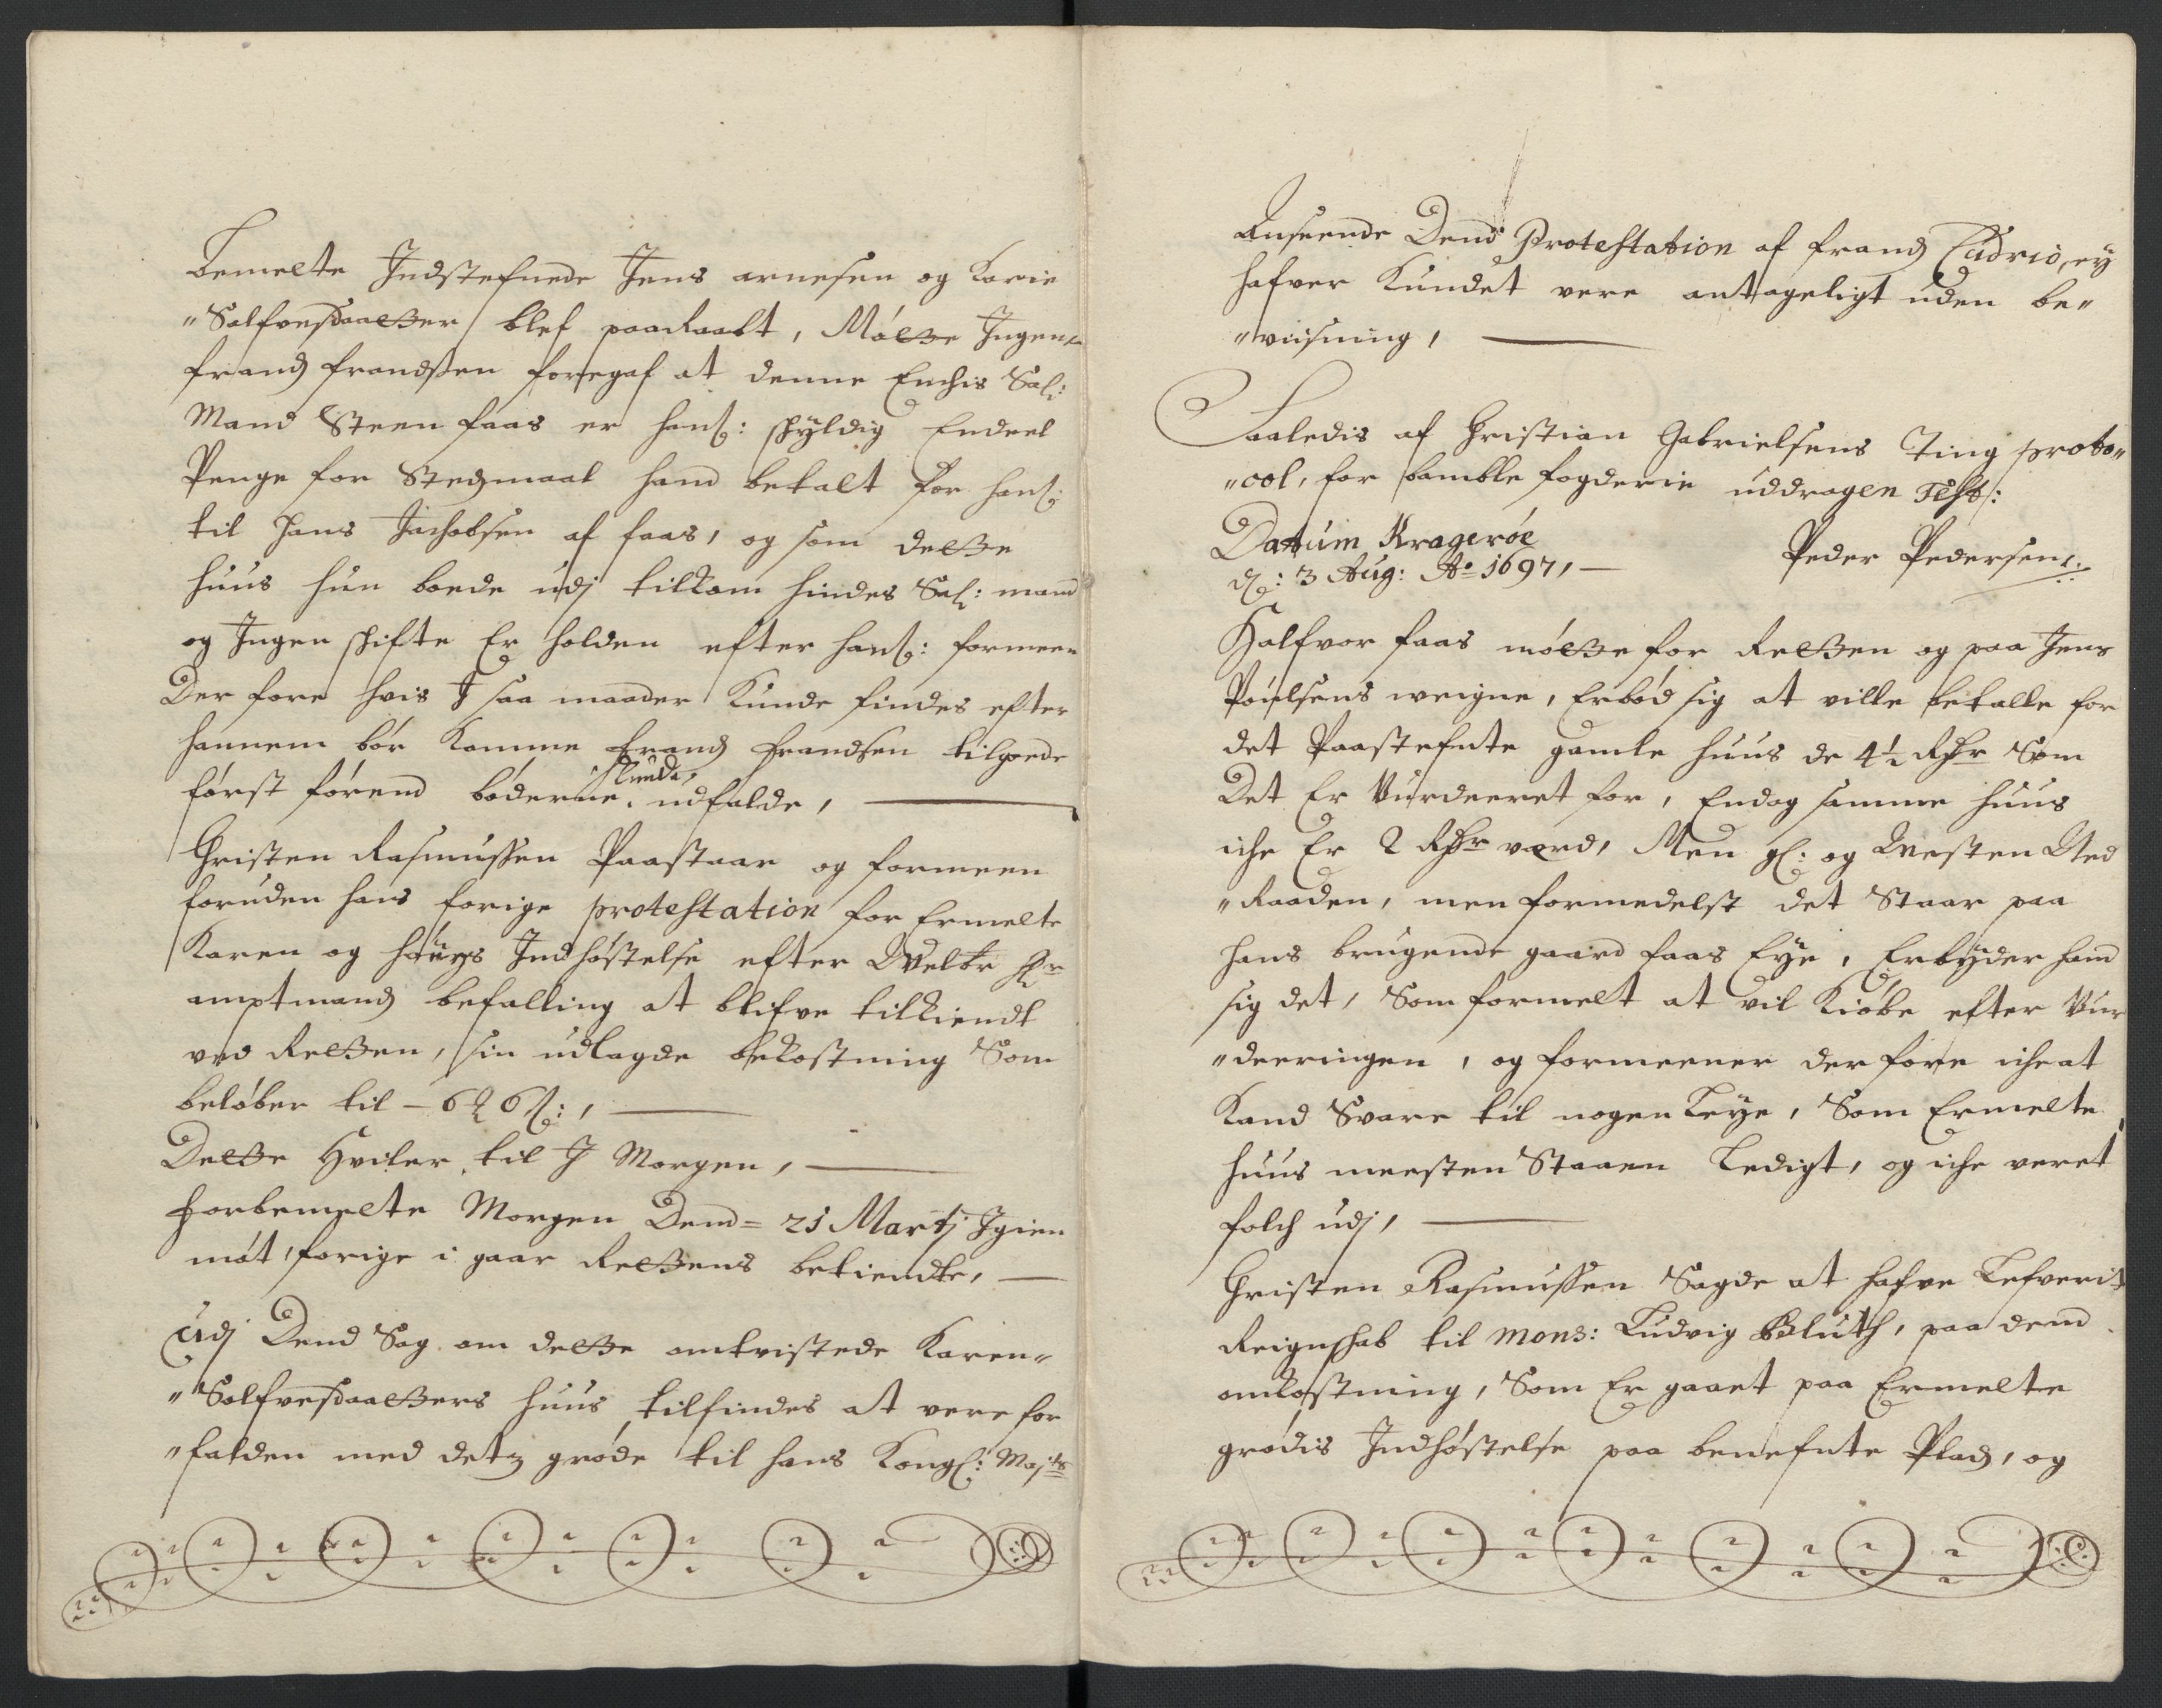 Bemelte Indstefnede Jens arnesen og Karie
"Solfvesdaatter blef paaRaabt, Mötte Ingen,
frandz frandsen foregaf at denne Enchis Sal:
Mand Steen faas er hanß: schyldig Endeel
Penge for Stedzmaal hand betalt for hanß:
til Hans Jachobsen af faas, og som dette
huus hun boede udj tilkom hindes Sal: mand
og Ingen schifte Er holden efter hanß: formeen
Der fore hvis I saa maader Kunde findes efter
hannem bör Komme frandz frandsen tilgoede
först förend böderne, Kunde, udfalde,
Christen Rasmussen Paastaar og formeen
foruden hans forige protestation for Ermelte
Karen og höyes Indhöstelse efter Welbr Hr
amptmandz befalling at blifve tilkiendt
ved Retten, sin udlagde bekostning Som
belöber til - 6 ꝛ 6 ß:,
Dette Hviler til I Morgen,
Forbemelte Morgen Dend = 21 Martj Igien
möt, forige i gaar Rettens betiendte,
Udj Dend Sag om dette omtvistede Karen"
"Solfvesdaatters huus tilfindes at vere for
"falden med detz gröde til hans Kongl: Majts
Anseende Dend Protestation af frandz Cudrio, ey
hafver Kundet vere antageligt uden be"
"viisning,
Saaledis af Christian Gabrielsens Ting proto"
"col, for bamble fogderie uddragen Test:
Datum Kragerøe
d: 3 Aug: Ao 1697,
Peder Pedersen
Halfvor faas mötte for Retten og paa Jens
Poulsens weigne, Erböd sig at ville betalle for
det Paastefnte gamle huus de 4½ Rdr Som
Det Er Vurdeeret for, Endog samme huus
iche Er 2 Rdr værd, Men gl: og Nesten Ned
"Raaden, men formedelst det Staar paa
hans brugende gaard faas Eye, Erbyder hand
sig det, Som formelt at vil Kiöbe efter Vur
"deeringen, og formeener der fore iche at
Kand Svare til nogen Leye, Som Ermelte
huus meesten Staaen Ledigt, og iche veret
folch udj,
Christen Rasmussen Sagde at hafve Lefverit
Reignschab til Mons: Ludvig Bluth, paa dend
omkostning, Som Er gaaet paa Ermelte
grödis Indhöstelse paa benefnte Pladz, og